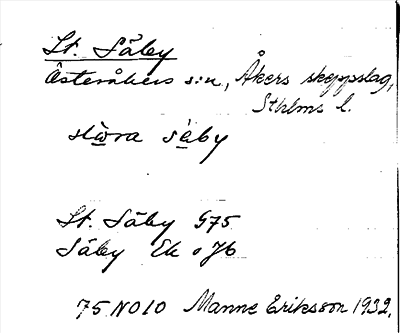 St. Säby
Österåkers s:n, Åkers skeppslag,
Sthlms l.
stora säby
St. Säby G75
Säby Ek o Jb
75 NO 10 Manne Eriksson 1932.